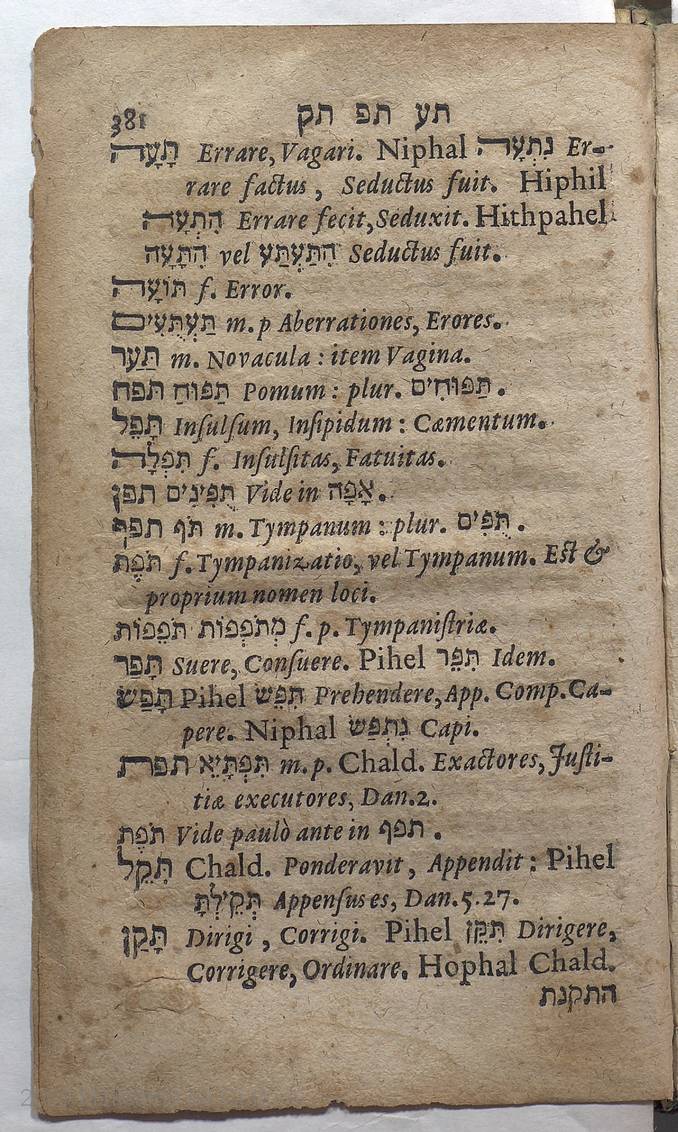 381 תע תפ תק
תָּעָה Errare, Vagari. Niphal נִתְעָה Er-
rare factus, Seductus fuit. Hiphil
הִתְעָה Errare fecit, Seduxit. Hithpahel
הִתָּעָה vel הִתַּעְתַּע Seductus fuit.
תּוֹעָה f. Error.
תַּעְתֻּעִים m. p Aberrationes, Erores.
תַּעַר m. Novacula : item Vagina.
תפח תַּפּוּחַ Pomum : plur. תַּפּוּחִים .
תָּפֵל Insulsum, Insipidum : Cæmentum.
תִּפְלָה f. Insulsitas, Fatuitas.
תפן תֻּפִינִים Vide in אָפָה.
תפף תֹּף m. Tympanum : plur. תֻּפִּים .
תֹּפֶת f. Tympanizatio, vel Tympanum. Est &
proprium nomen loci.
תֹּפֵפוֹת מְתֹפְפוֹת f. p. Tympanistriæ.
תָּפַר Suere, Consuere. Pihel תִּפֵּר Idem.
תָּפַשׂ Pihel תִּפֵּשׂ Prehendere, App. Comp. Ca-
pere. Niphal נִתְפַּשׂ Capi.
תפת תִּפְתָּיֵא m. p. Chald. Exactores, Justi-
tiæ executores, Dan. 2.
תֹּפֶת Vide paulò ante in תפף .
תְּקֵל Chald. Ponderavit, Appendit : Pihel
תְּקֵילְתָּ Appensus es, Dan. 5. 27.
תָּקַן Dirigi, Corrigi. Pihel תִּקֵּן Dirigere,
Corrigere, Ordinare. Hophal Chald.
התקנת